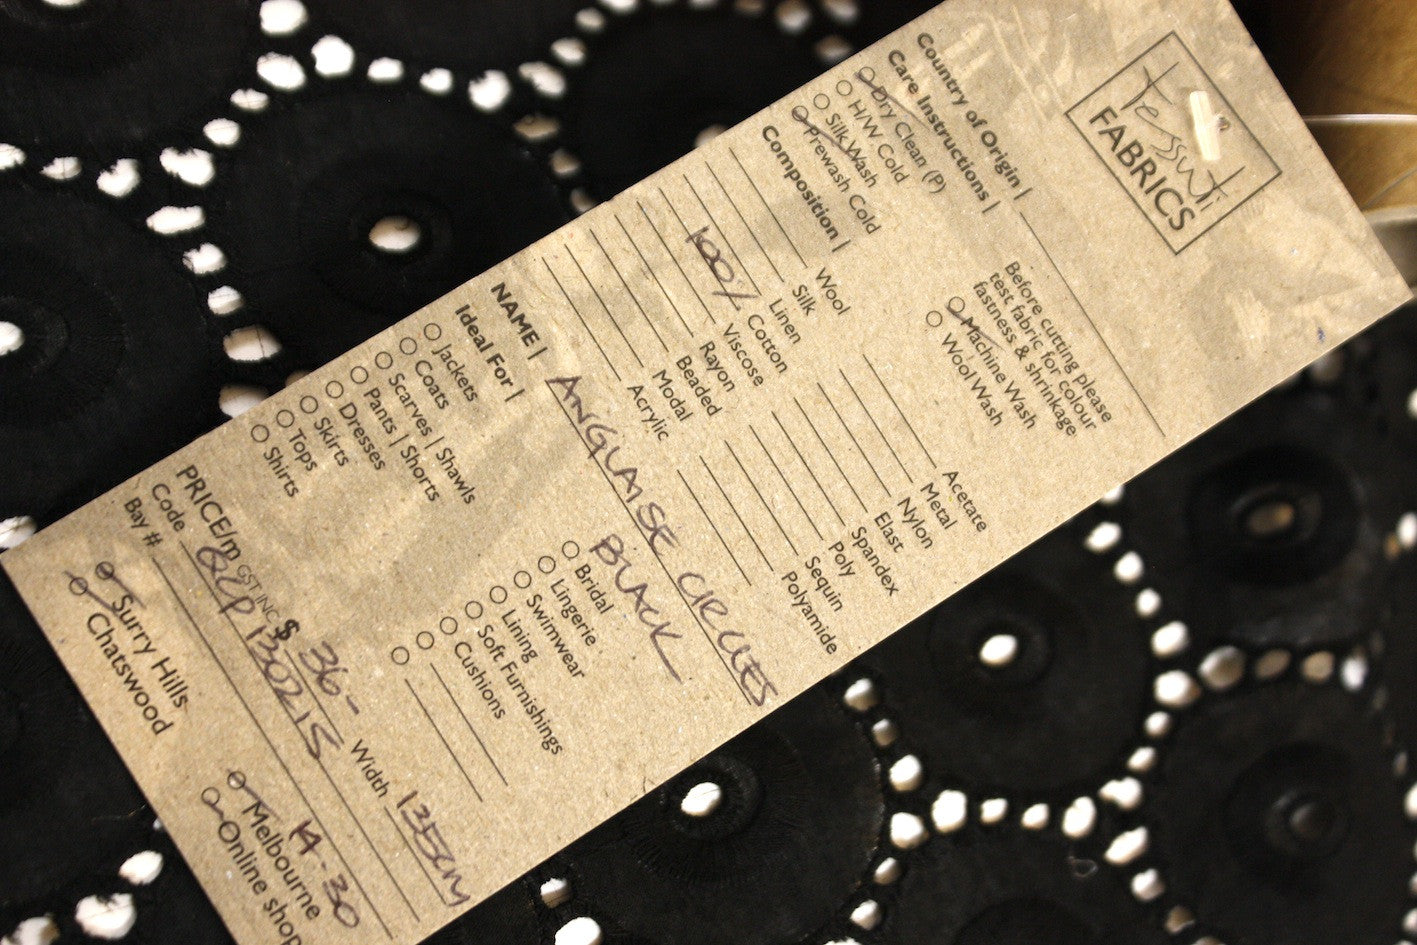 Tessuti
FABRICS
Country of Origin |
Care Instructions |
Dry Clean (P)
H/W Cold
Silk Wash
Prewash Cold
Before cutting please
test fabric for colour
fastness & shrinkage
Machine Wash
Wool Wash
Composition |
Wool
Silk
Linen
100% Cotton
Viscose
Rayon
Beaded
Modal
Acrylic
Acetate
Metal
Nylon
Elast
Spandex
Poly
Sequin
Polyamide
NAME | ANGLAISE CIRCLES
BLACK
Ideal For |
Jackets
Coats
Scarves | Shawls
Pants | Shorts
Dresses
Skirts
Tops
Shirts
Bridal
Lingerie
Swimwear
Lining
Soft Furnishings
Cushions
PRICE/m GST INC $ 36- Width 135cm
Code QCP 130215
Bay # 14-30
Surry Hills
Chatswood
Melbourne
Online shop